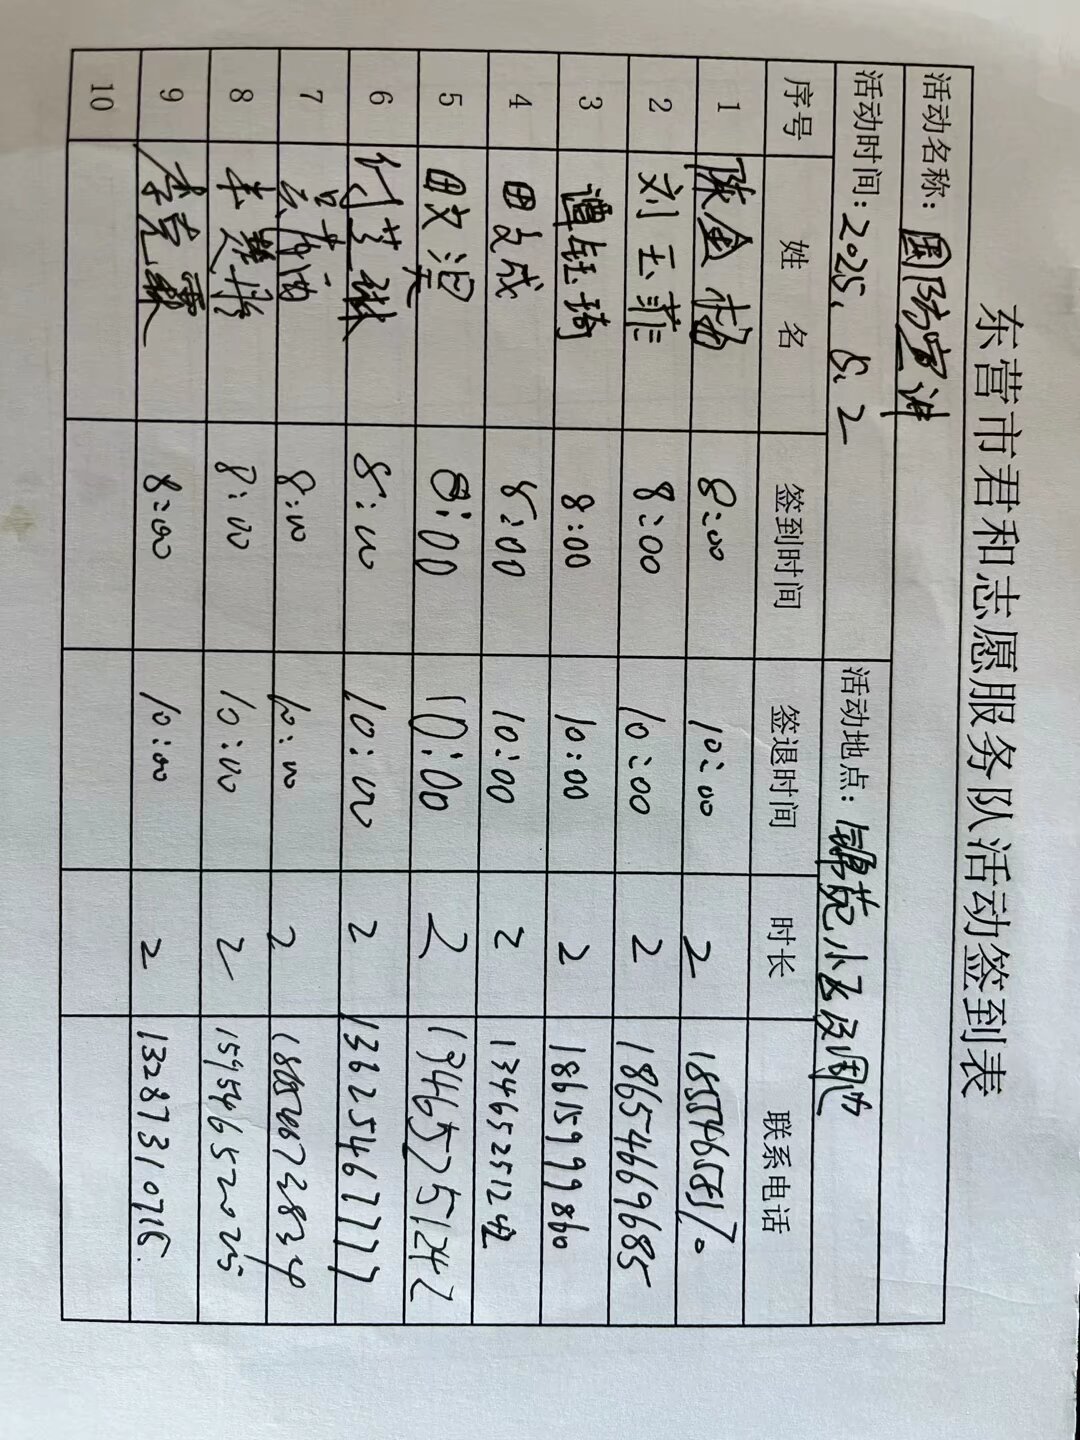 东营市君和志愿服务队活动签到表
活动名称：国防宣讲
活动时间：2025.5.2 活动地点：锦苑小区及周边
序号 姓名 签到时间 签退时间 时长 联系电话
1 陈金杨 8:00 10:00 2
2 刘玉菲 8:00 10:00 2 18654669685
3 谭钰琦 8:00 10:00 2 18615999860
4 田文成 8:00 10:00 2 13465251242
5 田文浥 8:00 10:00 2 13465251242
6 8:00 10:00 2 13625467777
7 8:00 10:00 2
8 8:00 10:00 2 15954652025
9 8:00 10:00 2 13287310716
10